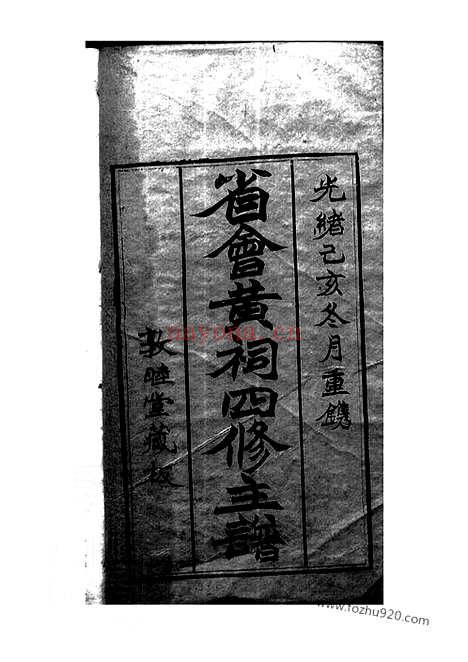 光緒己亥冬月重鐫
省會黃祠四修主譜
敦睦堂藏板
nayona.cn
www.fozhu920.com